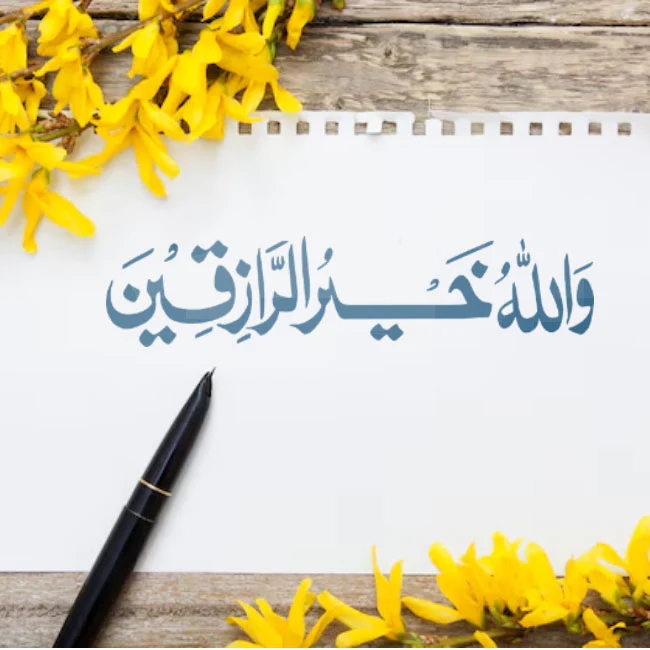 وَاللَّهُ خَيْرُ الرَّازِقِينَ